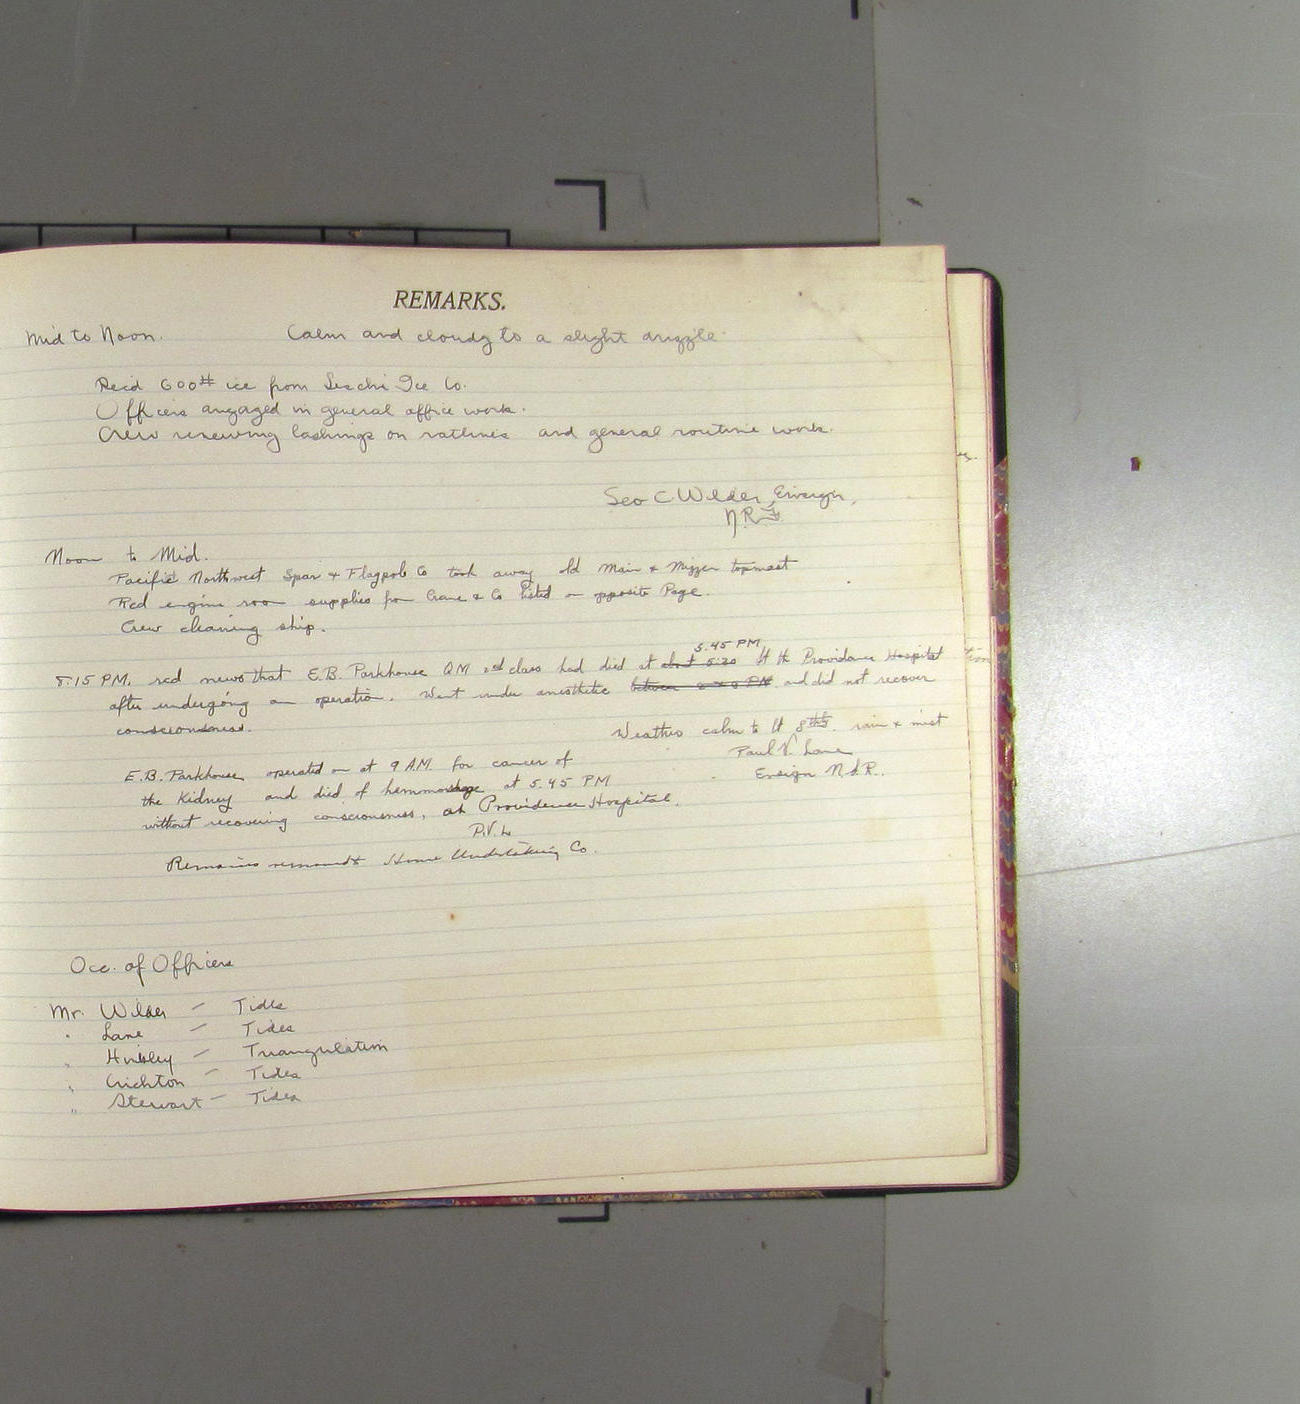 REMARKS.
Mid to Noon. Calm and cloudy to a slight drizzle.
Recd 600# ice from Ice Co.
Officers engaged in general office work.
Crew renewing lashings on ratlines and general routine work.
Geo C Wilder, Ensign,
N.R.F.
Noon to Mid.
Pacific Northwest Spar & Flagpole Co took away old Main & Mizzen topmast
Rcd engine room supplies from Crane & Co listed on opposite Page.
Crew cleaning ship.
5.45 PM
8:15 PM. rcd news that E.B. Parkhouse QM 2nd class had died at about 5:30 at the Providence Hospital
after undergoing an operation. Went under anesthetic between PM and did not recover
consciousness.
Weather calm to lt rain & mist
Paul V. Lane
Ensign N.R.
E.B. Parkhouse operated on at 9 A.M. for cancer of
the Kidney and died of hemmorhage at 5.45 PM
without recovering consciousness, at Providence Hospital.
P.V.L
Remains Home Undertaking Co.
Occ. of Officers
Mr. Wilder – Tides
" Lane – Tides
" – Triangulation
" Crichton – Tides
" Stewart – Tides